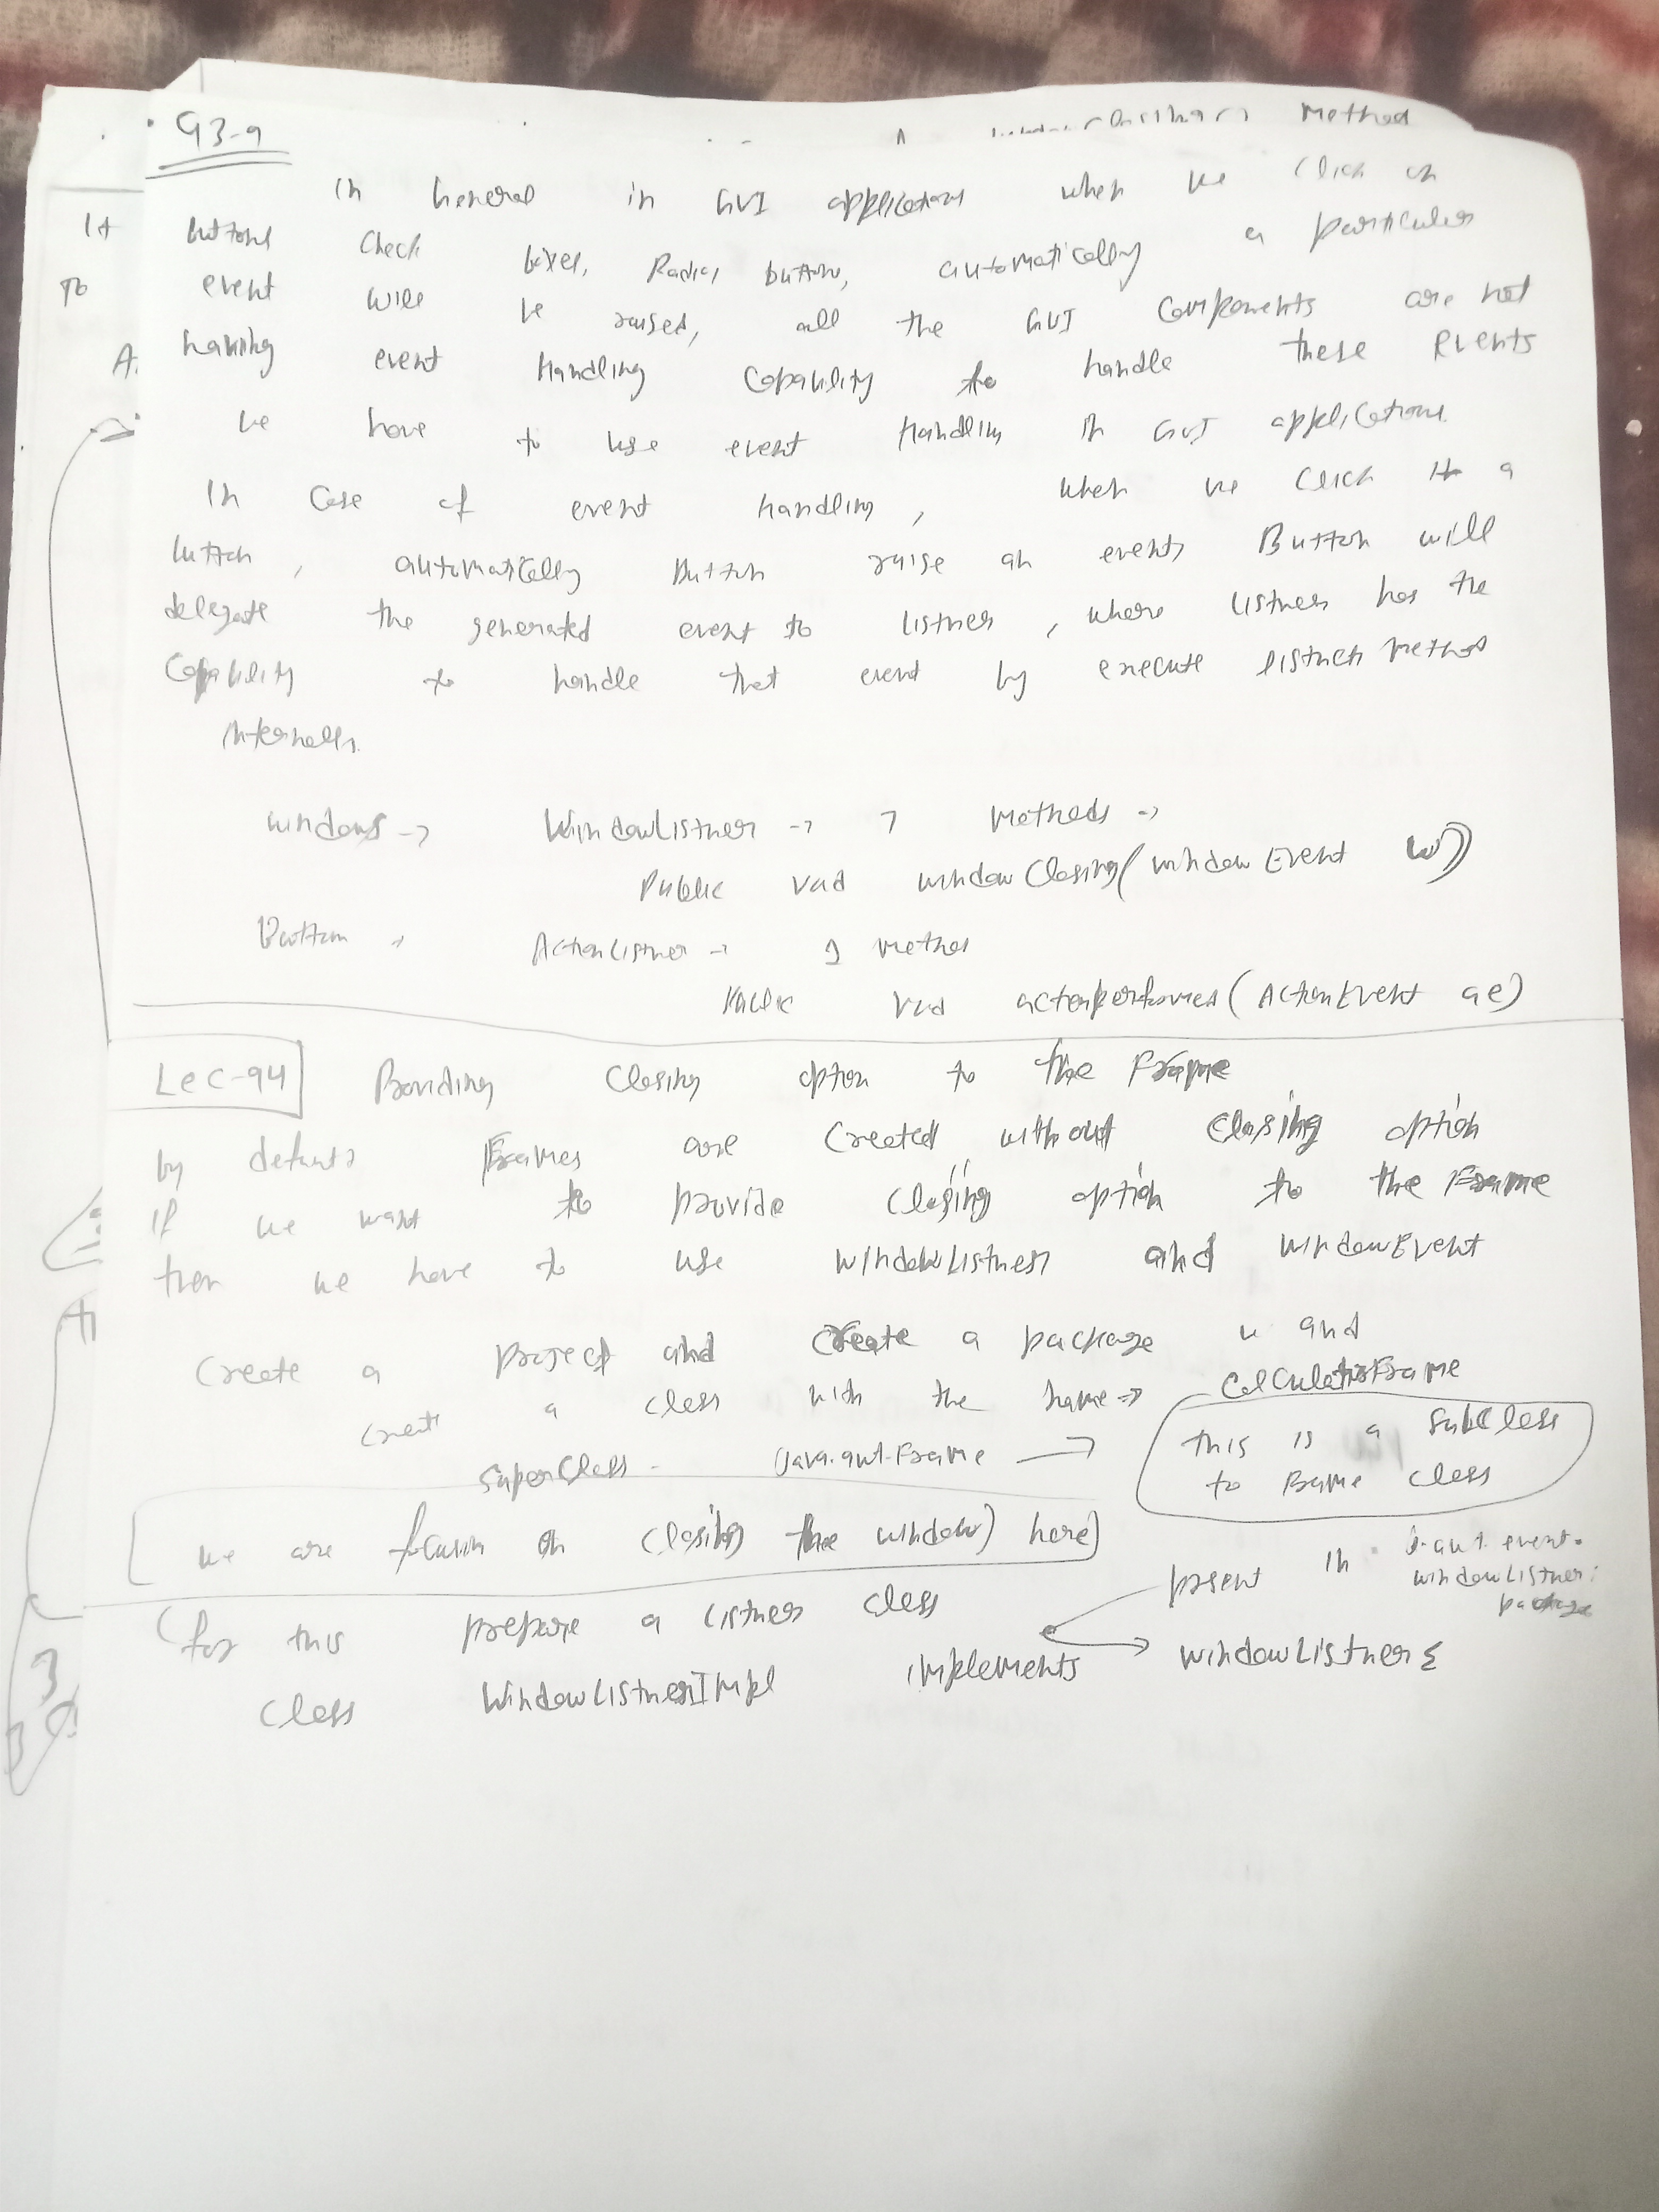 93-9
Method
In General in GUI applications when we click on
buttons check boxes, Radio button, automatically a particular
event will be raised, all the GUI Components are not
having event Handling Capability to handle these Events
we have to use event Handling in GUI applications.
In Case of event handling, when we click it a
button, automatically Button raise an events Button will
delegate the generated event to listner, where listner has the
Capability to handle that event by execute listner method
internally.
windows → WindowListner → 7 methods →
Public void windowClosing(windowEvent w)
Button → ActionListner → 1 method
Public void actionperformed(ActionEvent ae)
Lec-94 Providing Closing option to the Frame
by default Frames are Created without Closing option
If we want to provide Closing option to the Frame
then we have to use windowListner and windowEvent
Create a project and Create a package and
Create a class with the name → CalculatorFrame
SuperClass - java.awt.Frame → this is a SubClass
to Frame class
we are focusin on Closing the window) here)
for this prepare a listner class present in j.awt.event.
windowListner;
package
class WindowListnerImpl implements windowListner {
It
To
A.
3